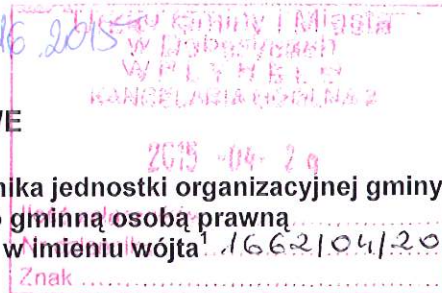 16.2015
Urząd Gminy i Miasta
w Dobczycach
WPŁYNĘŁO
KANCELARIA OGÓLNA 2
WE
2015 -04- 2
nika jednostki organizacyjnej gminy
gminną osobą prawną
w imieniu wójta¹ 1662/04/20
Znak